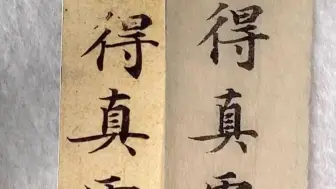 得真
得真